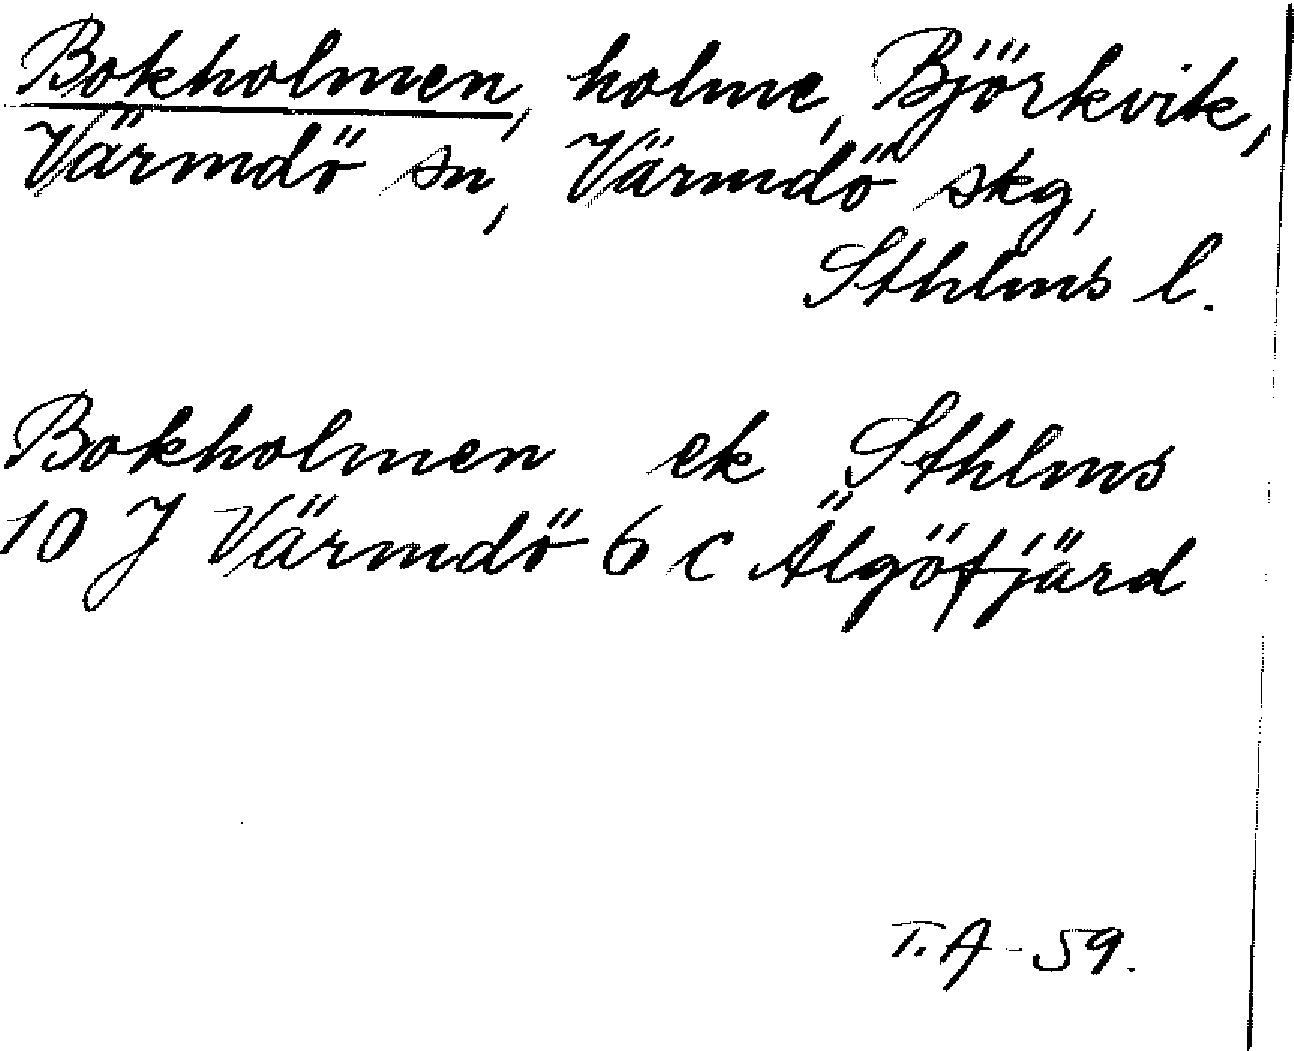 Bokholmen, holme, Björkvik,
Värmdö sn, Värmdö skg,
Sthlms l.
Bokholmen ek Sthlms
10 J Värmdö 6 c Älgöfjärd
T.A-59.